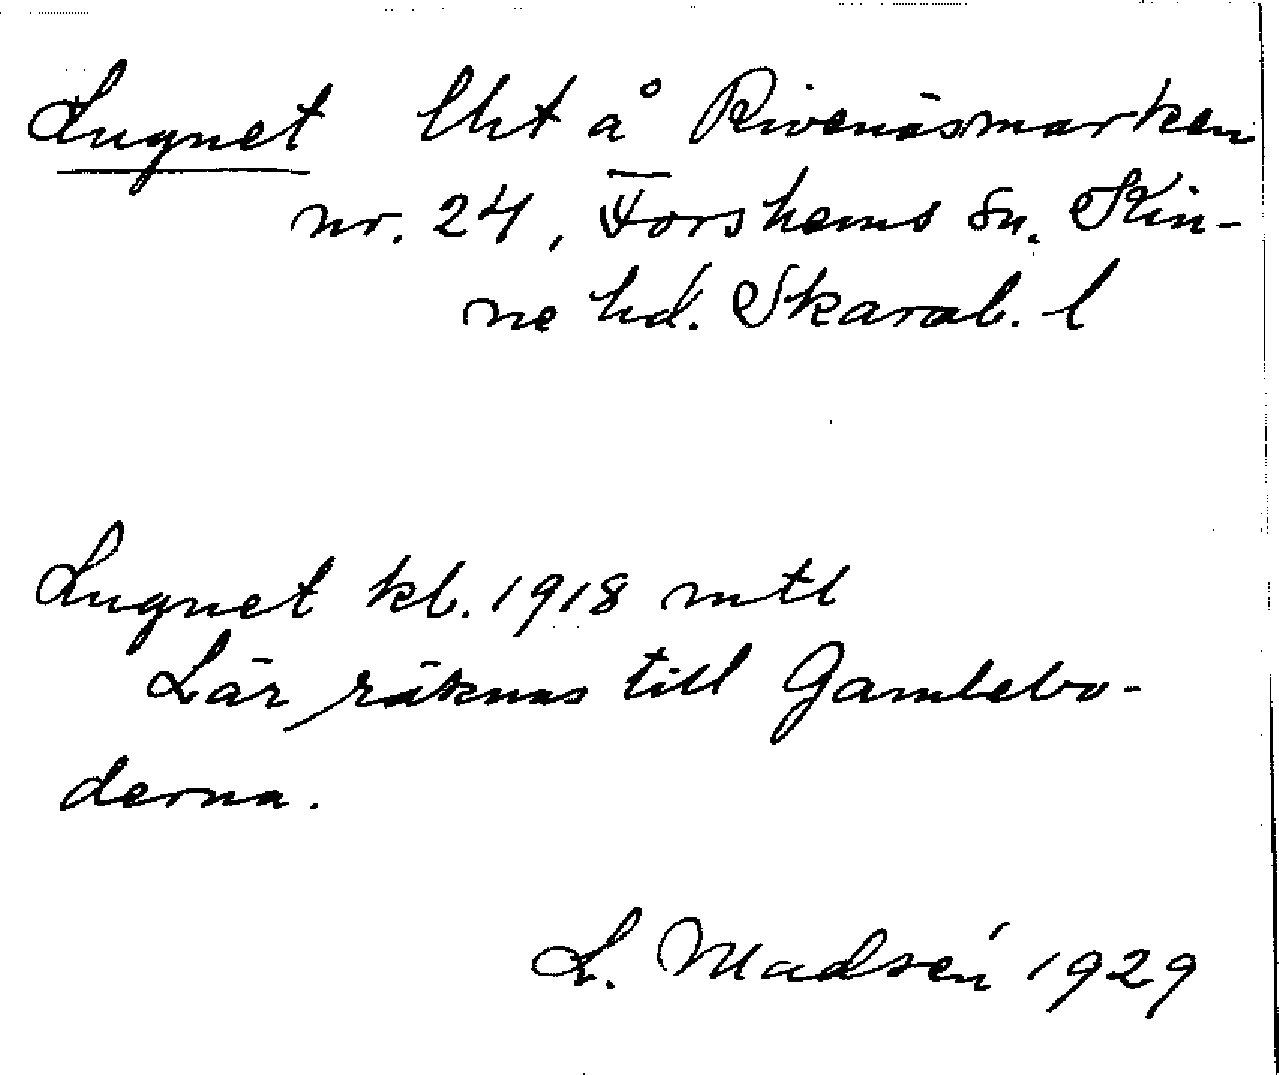 Lugnet lht å Rivenäsmarken
nr. 24, Forshems sn. Kin-
ne hd. Skarab. l
Lugnet kb. 1918 mtl
Lär räknas till Gamlebo-
derna.
L. Madsén 1929